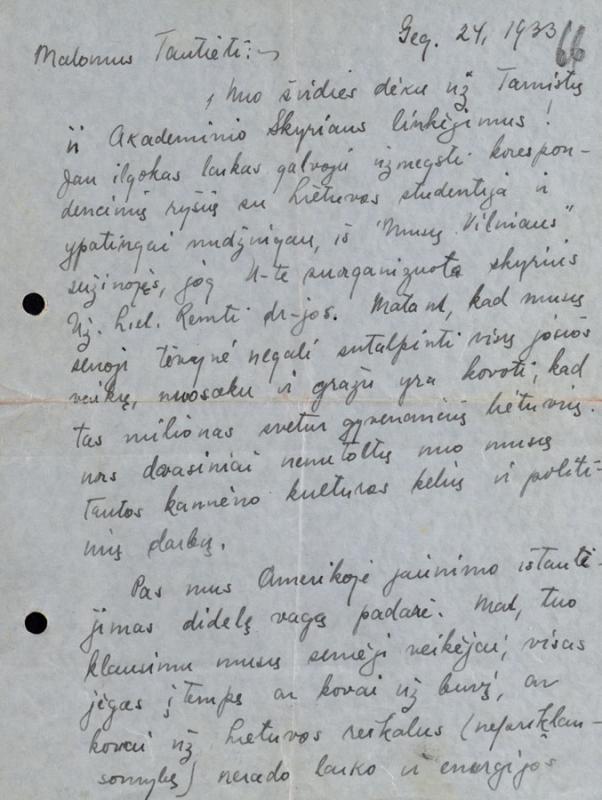 Geg. 24, 1933
66
Malonus Tautieti:-
Nuo širdies dėku už Tamistų
ir Akademinio Skyriaus linkėjimus!
Jau ilgokas laikas galvoju užmegsti korespon-
dencinių ryšių su Lietuvos studentija ir
ypatingai nudžiugau, iš "Musų Vilniaus"
sužinojęs, jog U-te suorganizuota skyrius
Už. Liet. Remti dr-jos. Matant, kad musų
senoji tėvynė negali sutalpinti visų jósios
vaikų, nuosaku ir gražu yra kovoti, kad
tas milionas svetur gyvenančių lietuvių.
nors dvasiniai nenutoltų nuo musų
tautos kamieno kulturos kelių ir politi-
nių darbų.
Pas mus Amerikoje jaunimo ištautė-
jimas didelę vagą padarė. Mat, tuo
klausimu musų senėji veikėjai, visas
jėgas įtempę ar kovai už buvį, ar
kovai už Lietuvos reikalus (nepriklau-
somybę) nerado laiko ir energijos